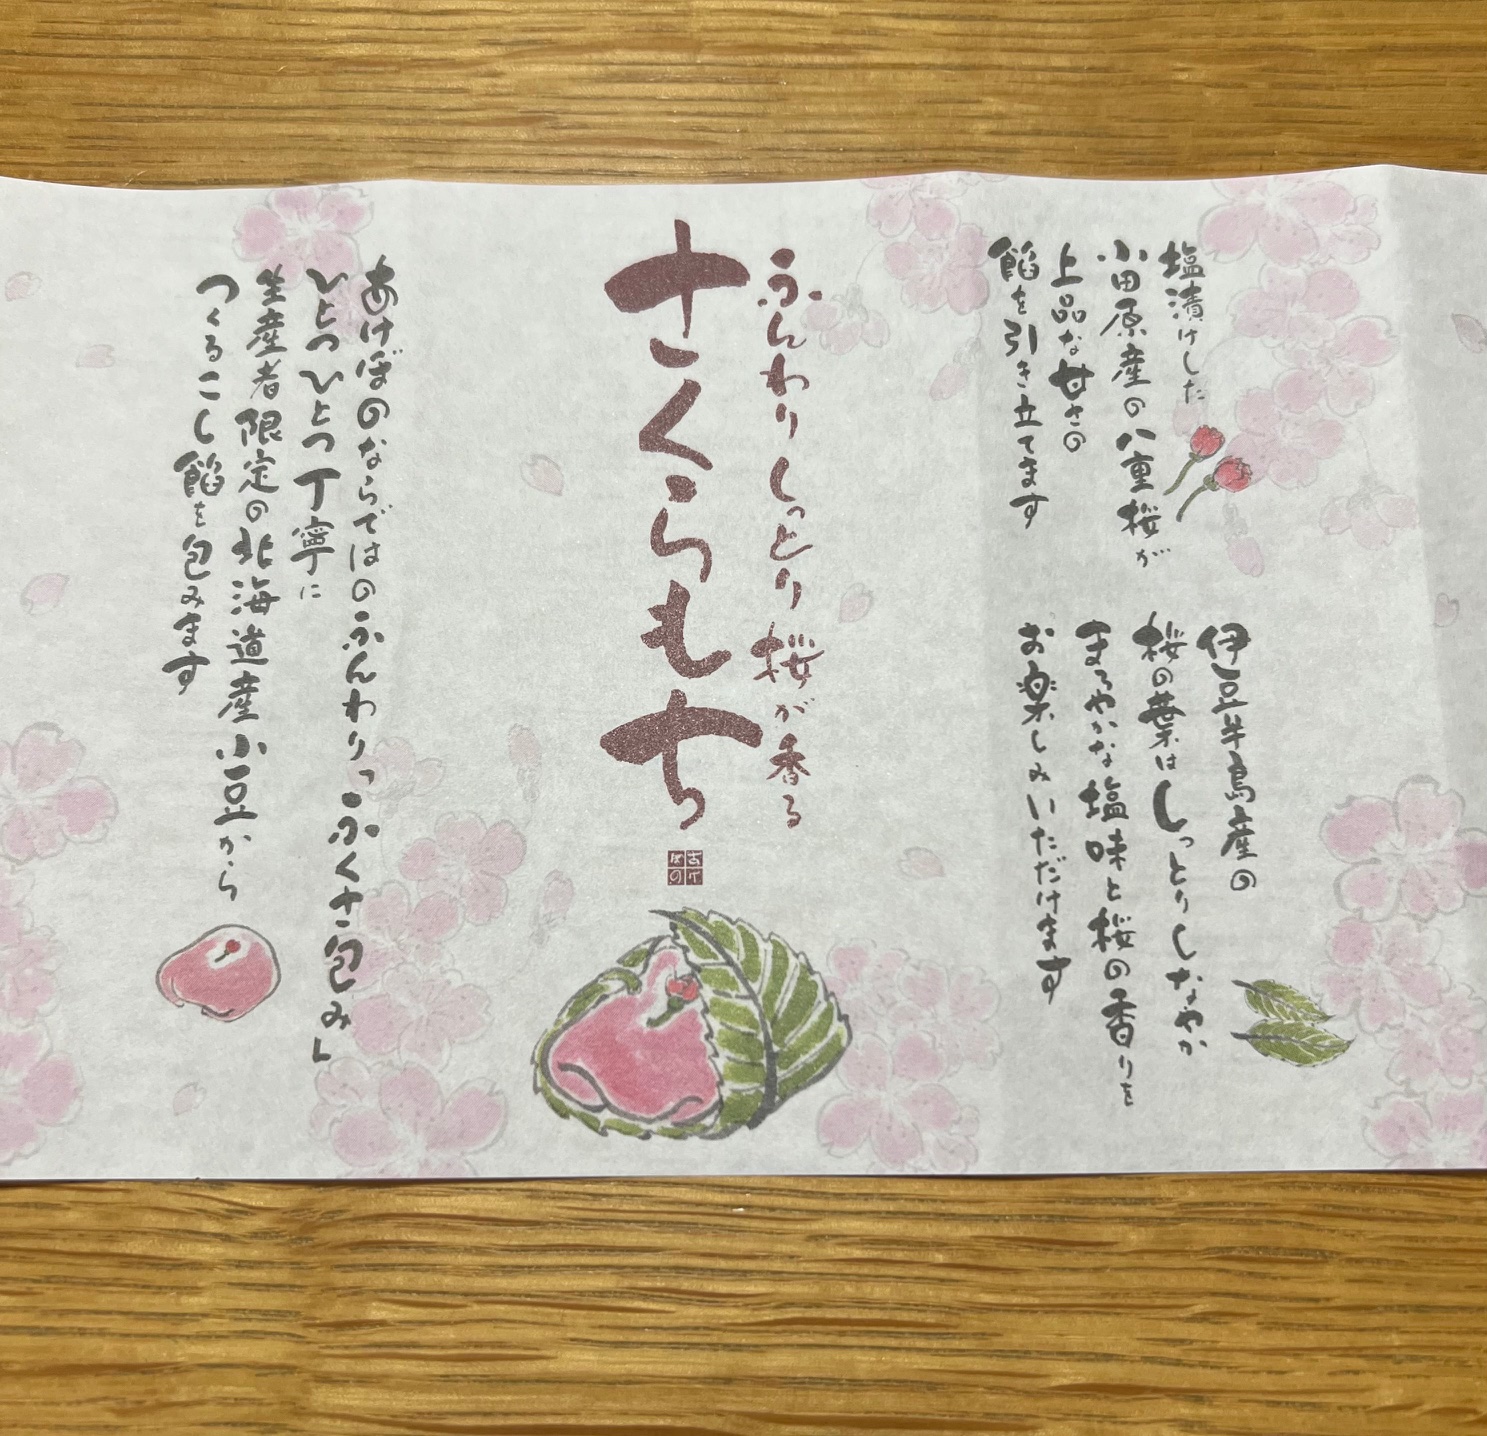 塩漬けした
小田原産の八重桜が
上品な甘さの
餡を引き立てます
伊豆半島産の
桜の葉はしっとりしなやか
まろやかな塩味と桜の香りを
お楽しみいただけます
ふんわりしっとり桜が香る
さくらもち
あけぼのならではのふんわり「ふくさ包み」
ひとつひとつ丁寧に
生産者限定の北海道産小豆から
つくるこし餡を包みます